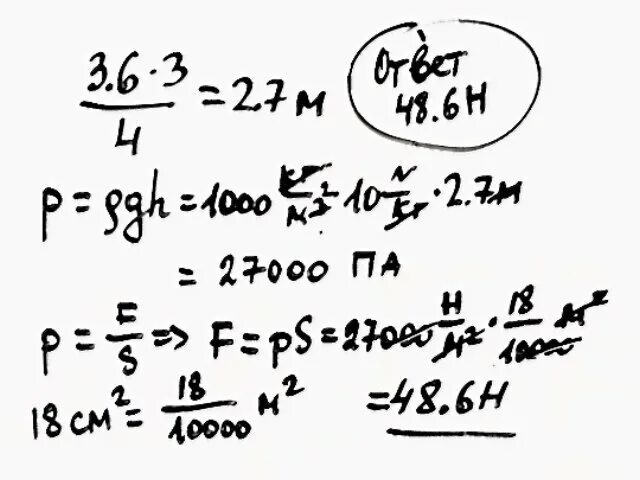 3.6·3/4 = 2.7 м
Ответ
48.6Н
p = ρgh = 1000 кг/м³ 10 N/кг · 2.7м
= 27000 ПА
p = F/S => F = pS = 27000 Н/м² · 18/10000 м²
18 см² = 18/10000 м²
= 48.6Н